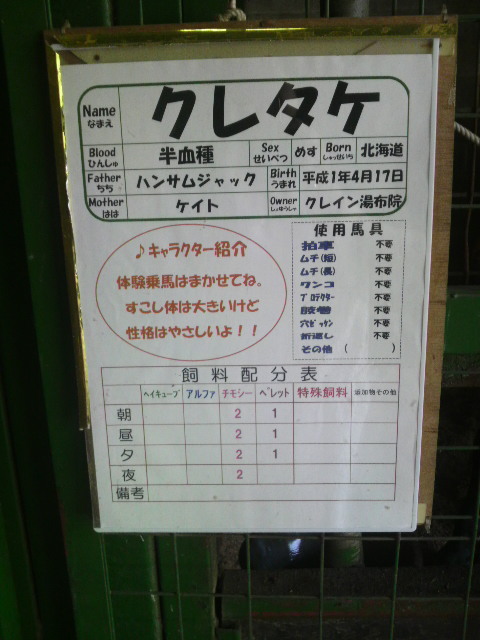 Name なまえ クレタケ
Blood ひんしゅ 半血種 Sex せいべつ めす Born しゅっせいち 北海道
Father ちち ハンサムジャック Birth うまれ 平成1年4月17日
Mother はは ケイト Owner しょゆうしゃ クレイン湯布院
♪キャラクター紹介
体験乗馬はまかせてね。
すこし体は大きいけど
性格はやさしいよ！！
使用馬具
拍車 不要
ムチ(短) 不要
ムチ(長) 不要
ワンコ 不要
プロテクター 不要
肢巻 不要
折返し 不要
その他 ( )
飼料配分表
ヘイキューブ アルファ チモシー ペレット 特殊飼料 添加物その他
朝 2 1
昼 2 1
夕 2 1
夜 2
備考